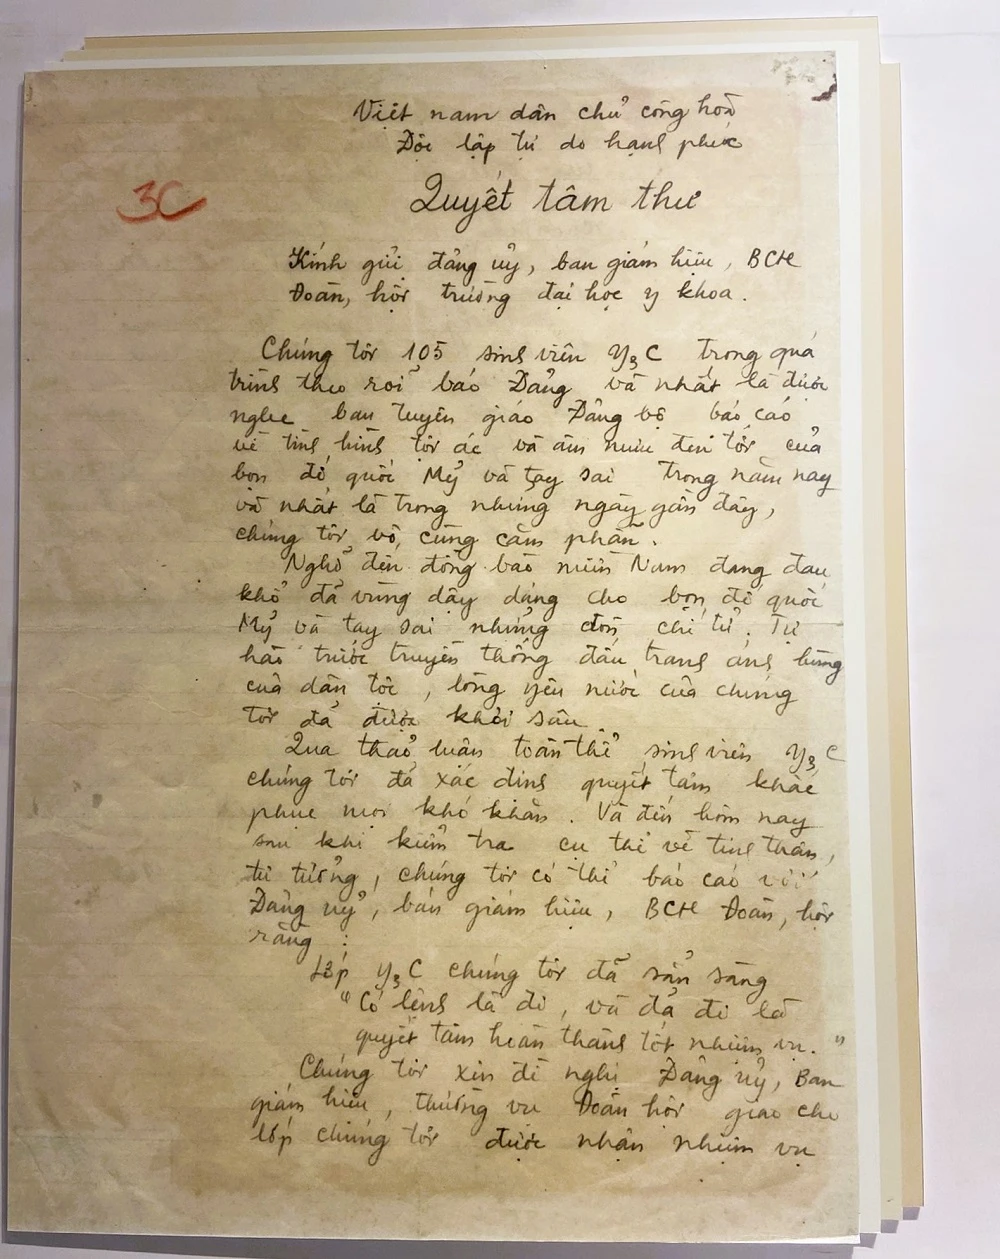 Việt nam dân chủ cộng hoà
Độc lập tự do hạnh phúc
3C
Quyết tâm thư
Kính gửi đảng uỷ, ban giám hiệu, BCH
Đoàn, hội trường đại học y khoa.
Chúng tôi 105 sinh viên Y3C trong quá
trình theo rõi báo Đảng và nhất là được
nghe ban tuyên giáo Đảng bộ báo cáo
về tình hình tội ác và âm mưu đen tối của
bọn đế quốc Mỹ và tay sai trong năm nay
và nhất là trong những ngày gần đây,
chúng tôi vô cùng căm phẫn.
Nghĩ đến đồng bào miền Nam đang đau
khổ đã vùng dậy dáng cho bọn đế quốc
Mỹ và tay sai những đòn chí tử. Tự
hào trước truyền thống đấu tranh anh hùng
của dân tộc, lòng yêu nước của chúng
tôi đã được khơi sâu
Qua thảo luận toàn thể sinh viên Y3C
chúng tôi đã xác định quyết tâm khắc
phục mọi khó khăn. Và đến hôm nay
sau khi kiểm tra cụ thể về tinh thần,
tư tưởng, chúng tôi có thể báo cáo với
Đảng uỷ, ban giám hiệu, BCH Đoàn, hội
rằng :
Lớp Y3C chúng tôi đã sẵn sàng
"Có lệnh là đi, và đã đi là
quyết tâm hoàn thành tốt nhiệm vụ."
Chúng tôi xin đề nghị Đảng uỷ, Ban
giám hiệu, thường vụ Đoàn hội giao cho
lớp chúng tôi được nhận nhiệm vụ